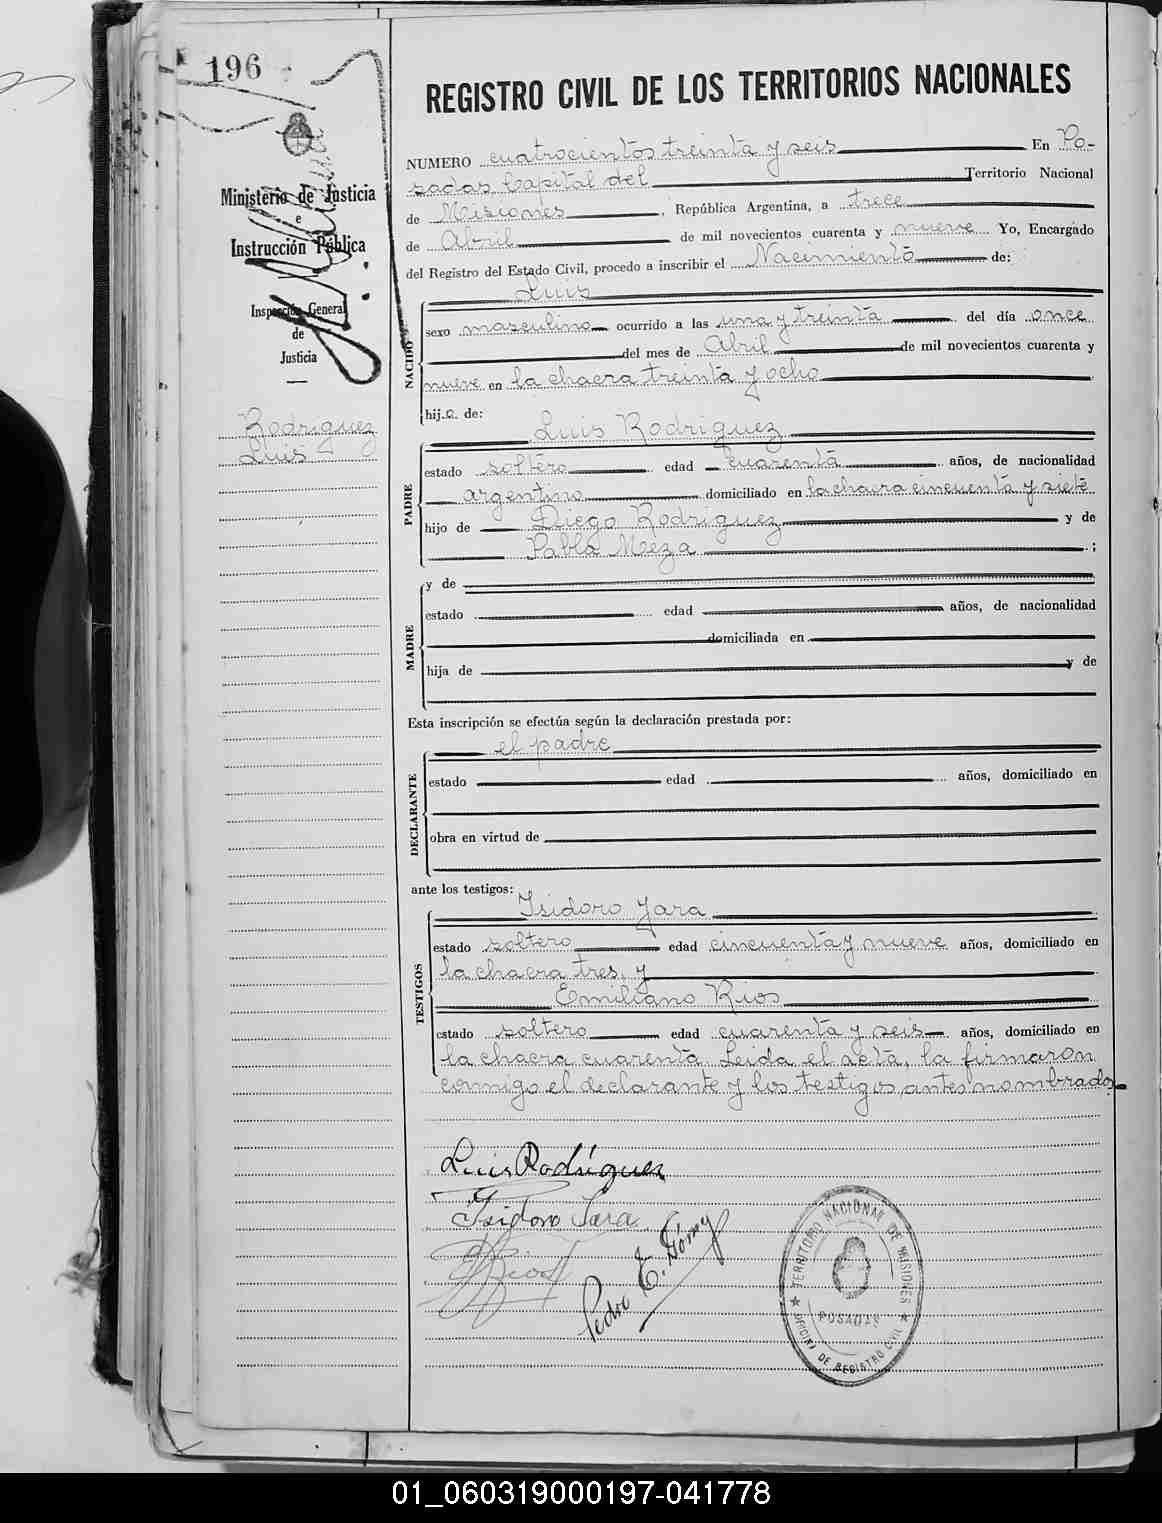 196
REGISTRO CIVIL DE LOS TERRITORIOS NACIONALES
Ministerio de Justicia
e
Instrucción Pública
Inspección General
de
Justicia
Rodriguez
Luis
NUMERO cuatrocientos treinta y seis En Po-
sadas Capital del Territorio Nacional
de Misiones, República Argentina, a trece
de Abril de mil novecientos cuarenta y nueve Yo, Encargado
del Registro del Estado Civil, procedo a inscribir el Nacimiento de:
NACIDO
Luis
sexo masculino ocurrido a las una y treinta del día once
del mes de Abril de mil novecientos cuarenta y
nueve en la chacra treinta y ocho
hij.o. de:
PADRE
Luis Rodriguez
estado soltero edad cuarenta años, de nacionalidad
argentino domiciliado en la chacra cincuenta y siete
hijo de Diego Rodriguez y de
Pabla Meza ;
MADRE
y de
estado edad años, de nacionalidad
domiciliada en
hija de y de
Esta inscripción se efectúa según la declaración prestada por:
DECLARANTE
el padre
estado edad años, domiciliado en
obra en virtud de
ante los testigos:
TESTIGOS
Isidoro Jara
estado soltero edad cincuenta y nueve años, domiciliado en
la chacra tres, y
Emiliano Rios
estado soltero edad cuarenta y seis años, domiciliado en
la chacra cuarenta. Leida el acta, la firmaron
conmigo el declarante y los testigos antes nombrados
Luis Rodriguez
Isidoro Jara
E Rios
Pedro E. Gómez
TERRITORIO NACIONAL DE MISIONES
POSADAS
OFICINA DE REGISTRO CIVIL
01_060319000197-041778